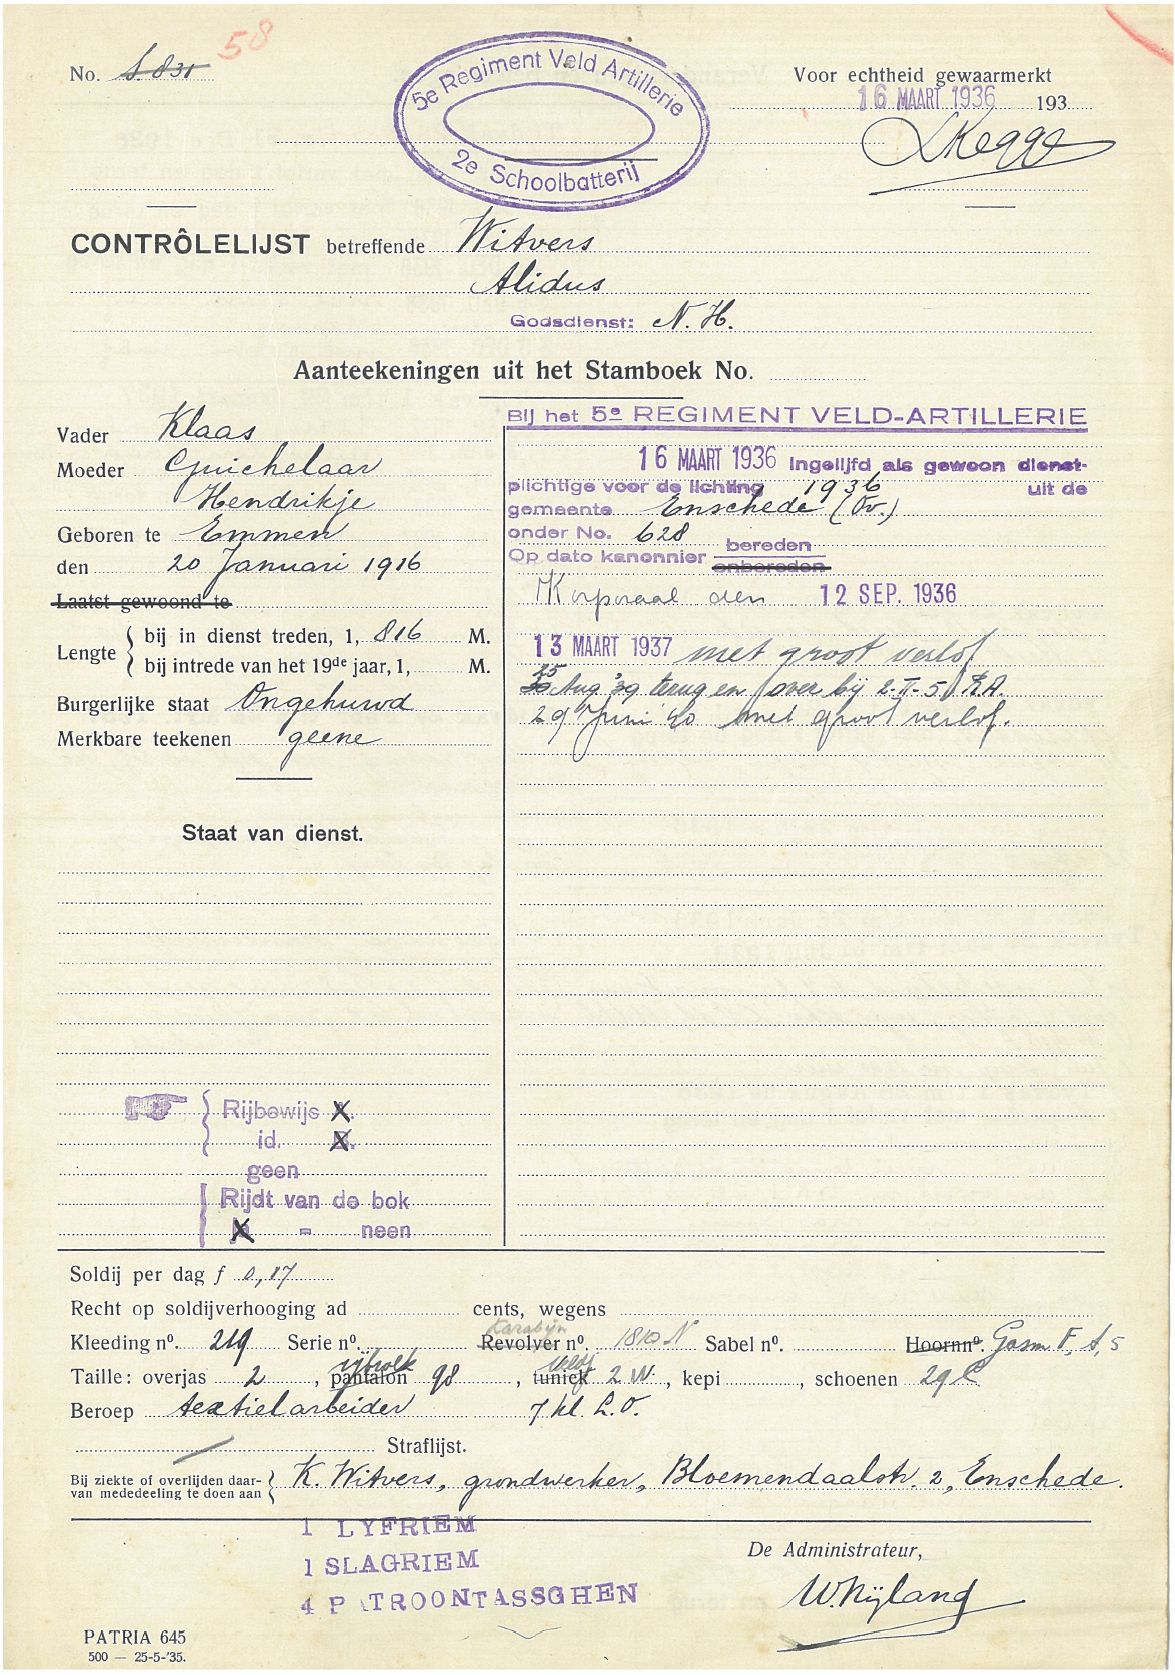 58
No. S.831
5e Regiment Veld Artillerie
2e Schoolbatterij
Voor echtheid gewaarmerkt
16 MAART 1936 193
CONTRÔLELIJST betreffende Witvers
Alidus
Godsdienst: N.H.
Aanteekeningen uit het Stamboek No.
Vader Klaas
Moeder Guichelaar
Hendrikje
Geboren te Emmen
den 20 Januari 1916
Laatst gewoond te
Lengte { bij in dienst treden, 1, 816 M.
bij intrede van het 19de jaar, 1, M.
Burgerlijke staat Ongehuwd
Merkbare teekenen geene
Staat van dienst.
Bij het 5e REGIMENT VELD-ARTILLERIE
16 MAART 1936 Ingelijfd als gewoon dienst-
plichtige voor de lichting 1936 uit de
gemeente Enschede (Ov.)
onder No. 628
Op dato kanonnier bereden
onbereden
Korporaal den 12 SEP. 1936
13 MAART 1937 met groot verlof
25 Aug '39 terug en over bij 2-II-5 R.A.
29 Juni '40 met groot verlof.
Rijbewijs A.
id. B.
geen
Rijdt van de bok
ja - neen
Soldij per dag f 0,17
Recht op soldijverhooging ad cents, wegens
Kleeding no. 219 Serie no. Revolver Karabijn no. 1810 N Sabel no. Hoornno. Gasm F, A, 5
Taille: overjas 2, pantalon rijbroek 98, tuniek veldj 2 W, kepi , schoenen 29 C
Beroep textielarbeider 7 kl. L.O.
Straflijst.
Bij ziekte of overlijden daar-
van mededeeling te doen aan } K. Witvers, grondwerker, Bloemendaalstr. 2, Enschede.
1 LYFRIEM
1 SLAGRIEM
4 PATROONTASSGHEN
De Administrateur,
W. Nijland
PATRIA 645
500 — 25-5-'35.